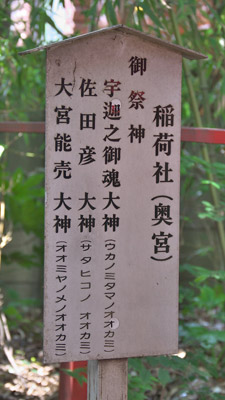 稲荷社(奥宮)
御祭神
宇迦之御魂大神(ウカノミタマノオオカミ)
佐田彦 大神(サタヒコノ オオカミ)
大宮能売 大神(オオミヤノメノオオカミ)